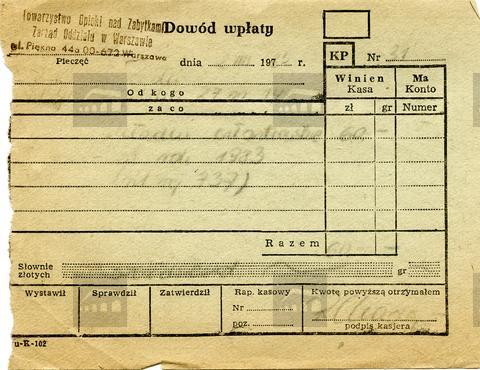 Towarzystwo Opieki nad Zabytkami
Zarząd Oddziału w Warszawie
ul. Piękna 44a 00-672 Warszawa
Dowód wpłaty
Pieczęć
dnia 197 r.
KP
Nr 21
Winien
Kasa
Ma
Konto
Od kogo
za co
zł
gr
Numer
60 -
1973
737)
Razem
60 -
Słownie
złotych
gr
Wystawił
Sprawdził
Zatwierdził
Rap. kasowy
Nr
poz.
Kwotę powyższą otrzymałem
podpis kasjera
u-K-102